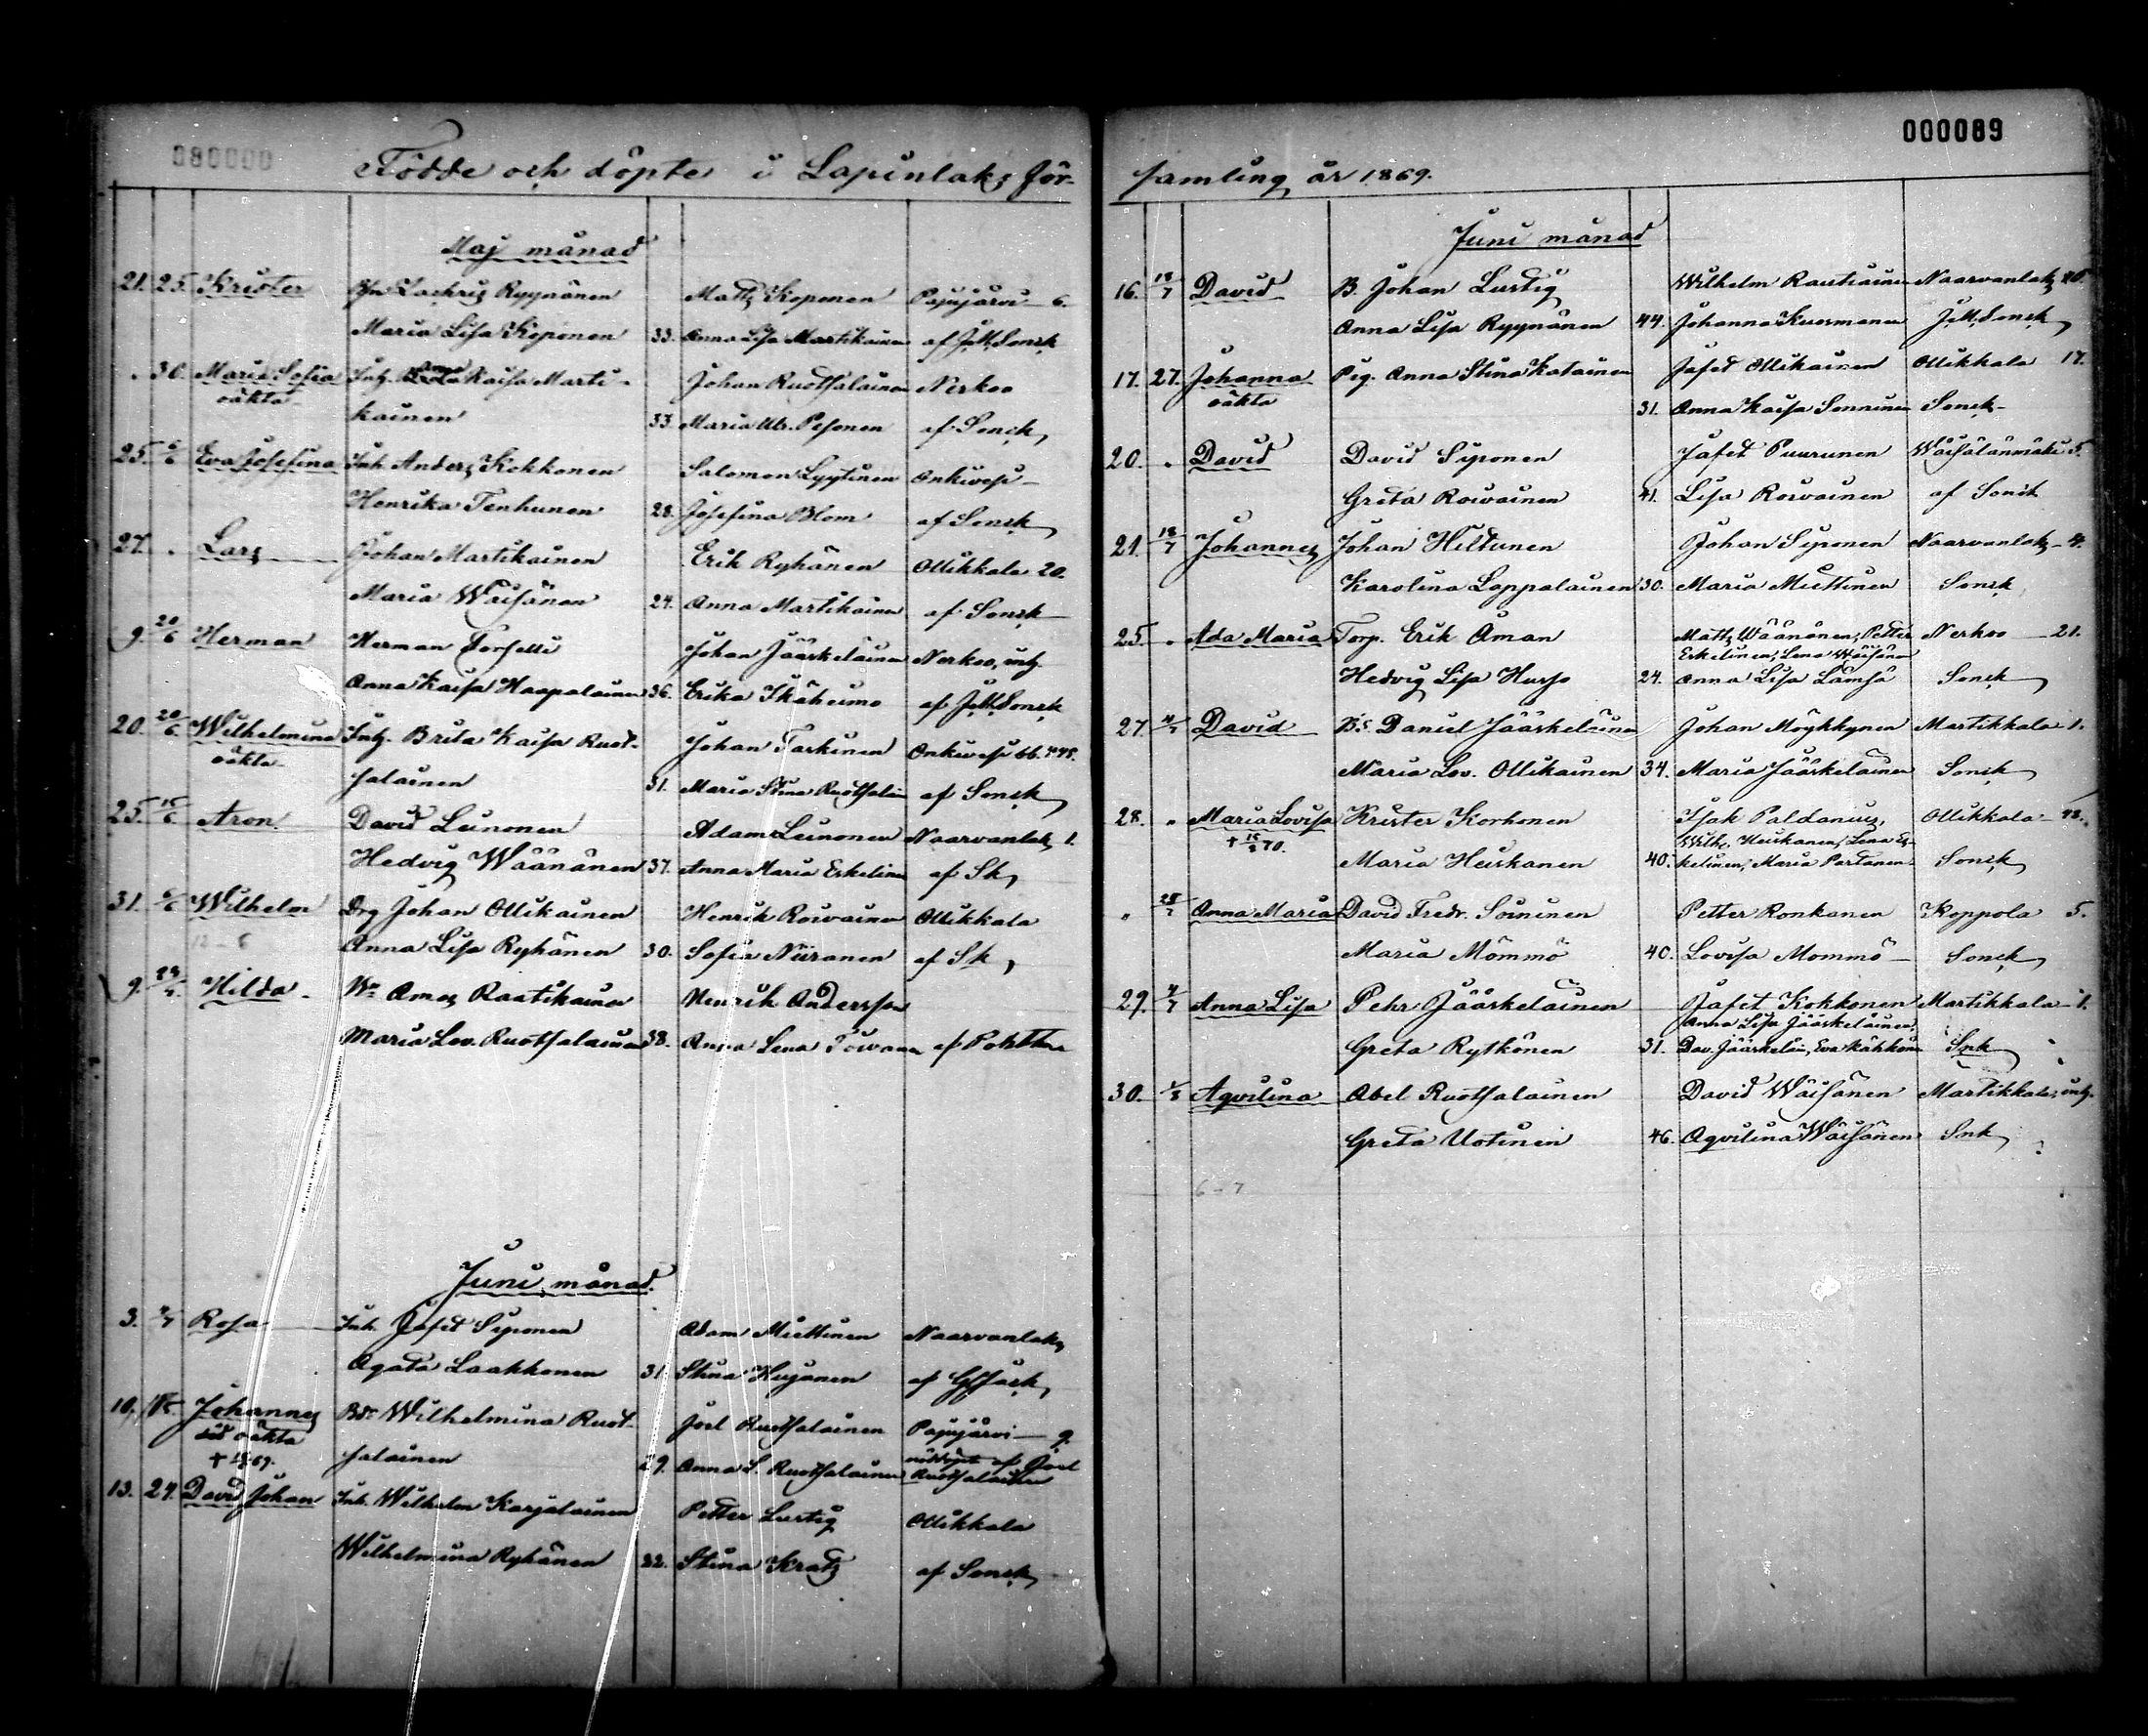 000089
Födde och döpte i Lapinlaks för-
Maj månad
21. 25. Krister Lachris Ryynänen Matts Koponen Pajujärvi 6.
Maria Lisa Koponen 33. Anna Lisa Martikainen af J.M. Sonck
30. Maria Sofia Inh. Kaisa Marti- Johan Ruotsalainen Nerkoo
oäkta kainen 33. Maria Ulr. Pesonen af Sonck
25. 6/6 Eva Josefina Inh. Anders Kokkonen Salomon Lyytinen Onkivesi
Henrika Tenhunen 28. Josefina Blom af Sonck
27. " Lars Johan Martikainen Erik Ryhänen Ollikkala 20.
Maria Wäisänen 24. Anna Martikainen af Sonck
9. 20/6 Herman Herman Torselli Johan Jääskeläinen Nerkoo, inh.
Anna Kaisa Haapalainen 36. Erika Ikäheimo af J.M. Sonck
20. 20/6 Wilhelmina Inh. Brita Kaisa Ruot- Johan Tarkinen Onkivesi
oäkta salainen 31. Maria Stina Ruotsalain af Sonck
25. Aron David Leinonen Adam Leinonen Naarvanlaks 1.
Hedvig Wäänänen 37. Anna Maria Eskelinen af Sk
31. 6/6 Wilhelm Drg Johan Ollikainen Henrik Roivainen Ollikkala
Anna Lisa Ryhänen 30. Sofia Niiranen af Sk
9. Hilda Amos Raatikainen Henrik Andersson
Maria Lov. Ruotsalainen 38. Anna Lena Toivanen
Juni månad
3. 4/7 Rosa Inh. Jafet Siponen Adam Miettinen Naarvanlaks
Agata Laakkonen 31. Stina Hujanen
10. Johannes Wilhelmina Ruot- Joel Ruotsalainen Pajujärvi 9.
oäkta salainen 29. Anna L. Ruotsalainen nöddöpt af Joel
Ruotsalainen
13. 27. David Johan Inh. Wilhelm Karjalainen Petter Lustig Ollikkala
Wilhelmina Ryhänen 22. Stina Kratz af Sonck
samling år 1869.
Juni månad
16. 18/7 David B. Johan Lustig Wilhelm Rautiainen Naarvanlaks
Anna Lisa Ryynänen 44. Johanna Kuosmanen J.M. Sonck
17. 27. Johanna Pig. Anna Stina Katainen Jafet Ollikainen Ollikkala 17.
oäkta 31. Anna Kaisa Sonninen Sonck
20. " David David Siponen Jafet Puurunen Wäisälänmäki 5.
Greta Roivainen 41. Lisa Roivainen af Sonck
21. 18/7 Johannes Johan Hiltunen Johan Siponen Naarvanlaks 4.
Karolina Lappalainen 30. Maria Miettinen Sonck
25. " Ada Maria Torp. Erik Åman Matts Wäänänen, Petter Nerkoo 21.
Eskelinen, Lena Wäisänen
Hedvig Lisa Husso 24. Anna Lisa Lämsä Sonck
27. 4/7 David Bs. Daniel Jääskeläinen Johan Möykkynen Martikkala 1.
Maria Lov. Ollikainen 34. Maria Jääskeläinen Sonck
28. " Maria Lovisa Krister Korhonen Isak Paldanius, Ollikkala
Wilh. Heiskanen, Lena Es-
Maria Heiskanen 40. kelinen, Maria Partanen Sonck
" 25/7 Anna Maria David Fredr. Soininen Petter Ronkanen Koppola 5.
Maria Mömmö 40. Lovisa Mömmö Sonck
29. 4/7 Anna Lisa Pehr Jääskeläinen Jafet Kokkonen Martikkala 1.
Anna Lisa Jääskeläinen,
Greta Rytkönen 31. Dav. Jääskeläin, Eva Kähkönen Snk
30. 1/8 Aqvilina Abel Ruotsalainen David Wäisänen Martikkala, inh.
Greta Uotinen 46. Aqvilina Wäisänen Snk
6-7